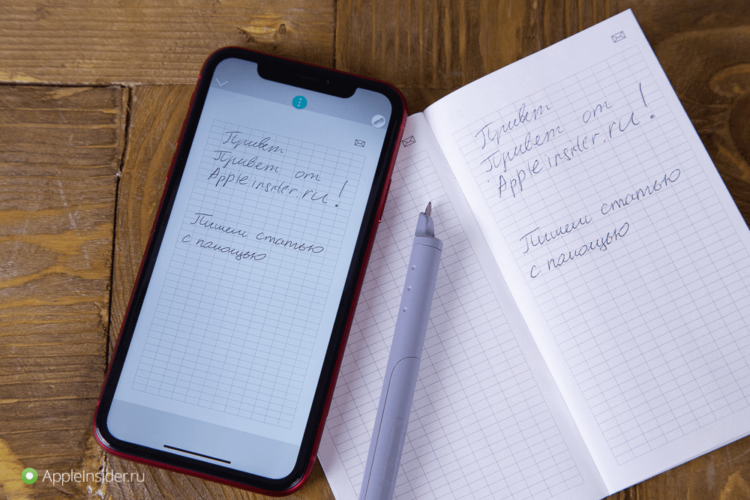 Привет
Привет от
AppleInsider.ru!
Пишем статью
с помощью
Привет
Привет от
AppleInsider.ru!
Пишем статью
с помощью
AppleInsider.ru